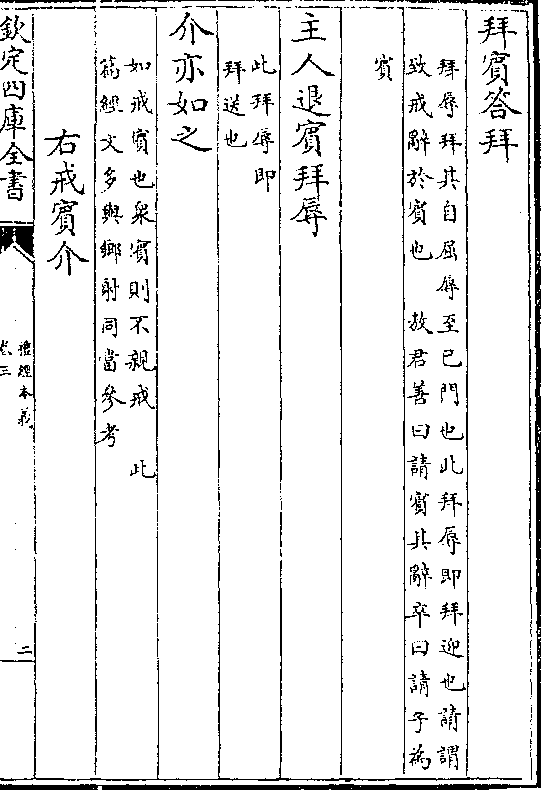 拜賓答拜
拜辱拜其自屈辱至已門也此拜辱即拜迎也請謂
致戒辭於賓也　敖君善曰請賓其辭卒曰請子為
賓
主人退賓拜辱
此拜辱即
拜送也
介亦如之
如戒賓也衆賓則不親戒　此
篇經文多與鄉射同當參考
右戒賓介
欽定四庫全書
禮經本義
卷三
二